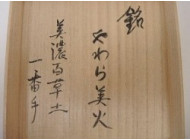 銘
やわら美火
美濃百草土
一番手